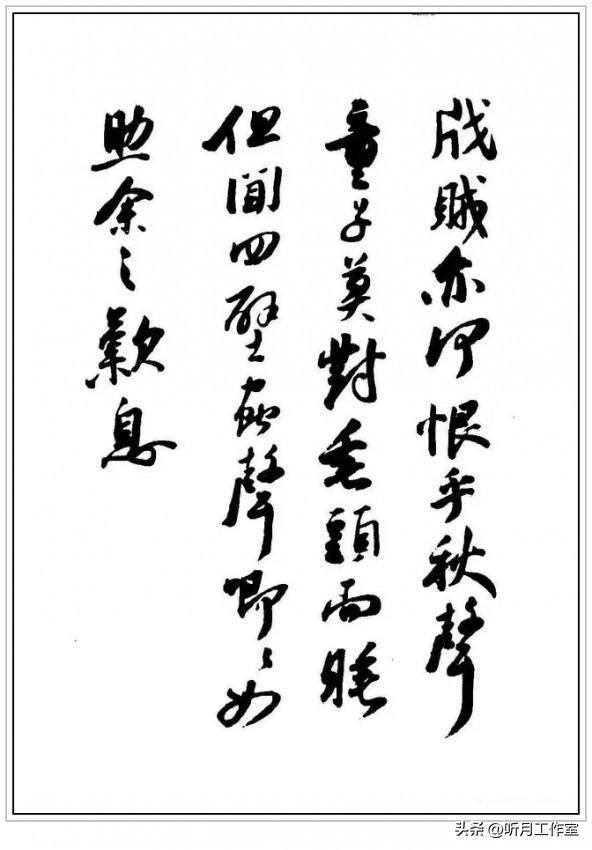 戕賊亦何恨乎秋聲
童子莫對垂頭而睡
但聞四壁蟲聲唧〻如
助余之歎息
头条 @听月工作室